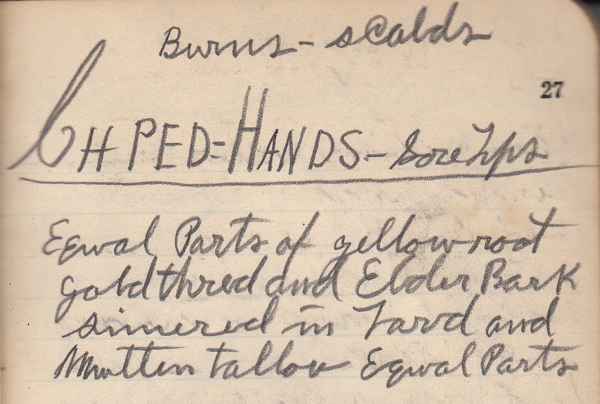 Burns - sCalds
27
CH PED=HANDS - Sore Lips
Eqwal Parts of yellow root
goldthred and Elder Bark
simered in Lard and
Mutten tallow Eqwal Parts